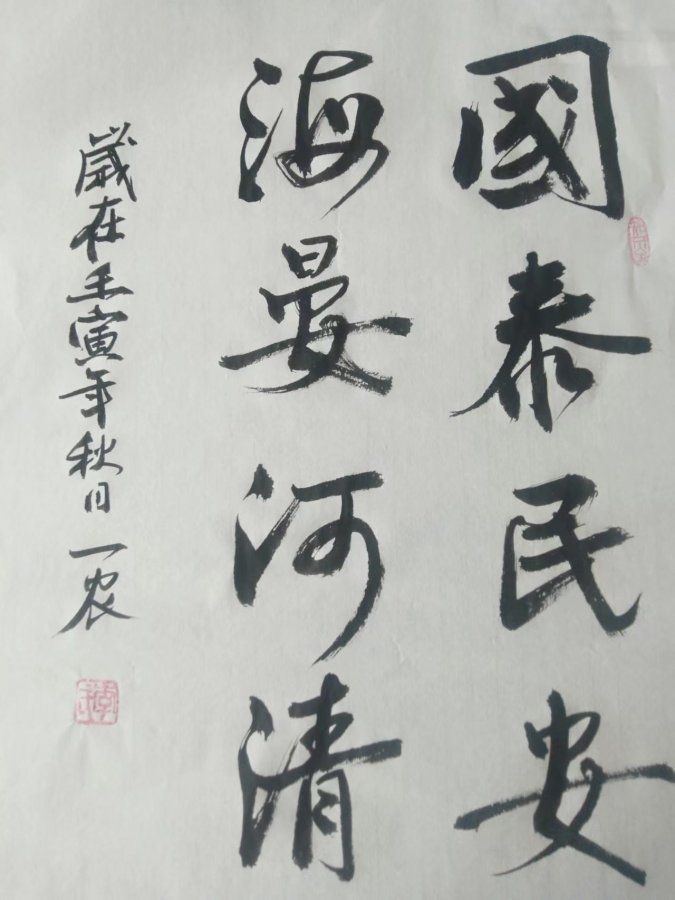 國泰民安
海晏河清
歲在壬寅年秋日一农